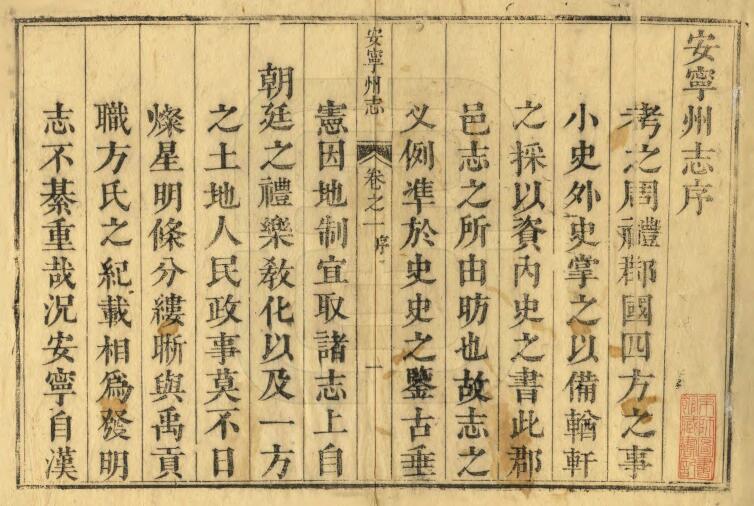 安寧州志序
考之周禮郡國四方之事
小史外史掌之以備輶軒
之採以資内史之書此郡
邑志之所由昉也故志之
义例準於史史之鑒古垂
安寧州志 卷之一 序 一
憲因地制宜取諸志上自
朝廷之禮樂敎化以及一方
之土地人民政事莫不日
燦星明條分縷晰與禹貢
職方氏之紀載相爲發明
志不綦重哉況安寧自漢